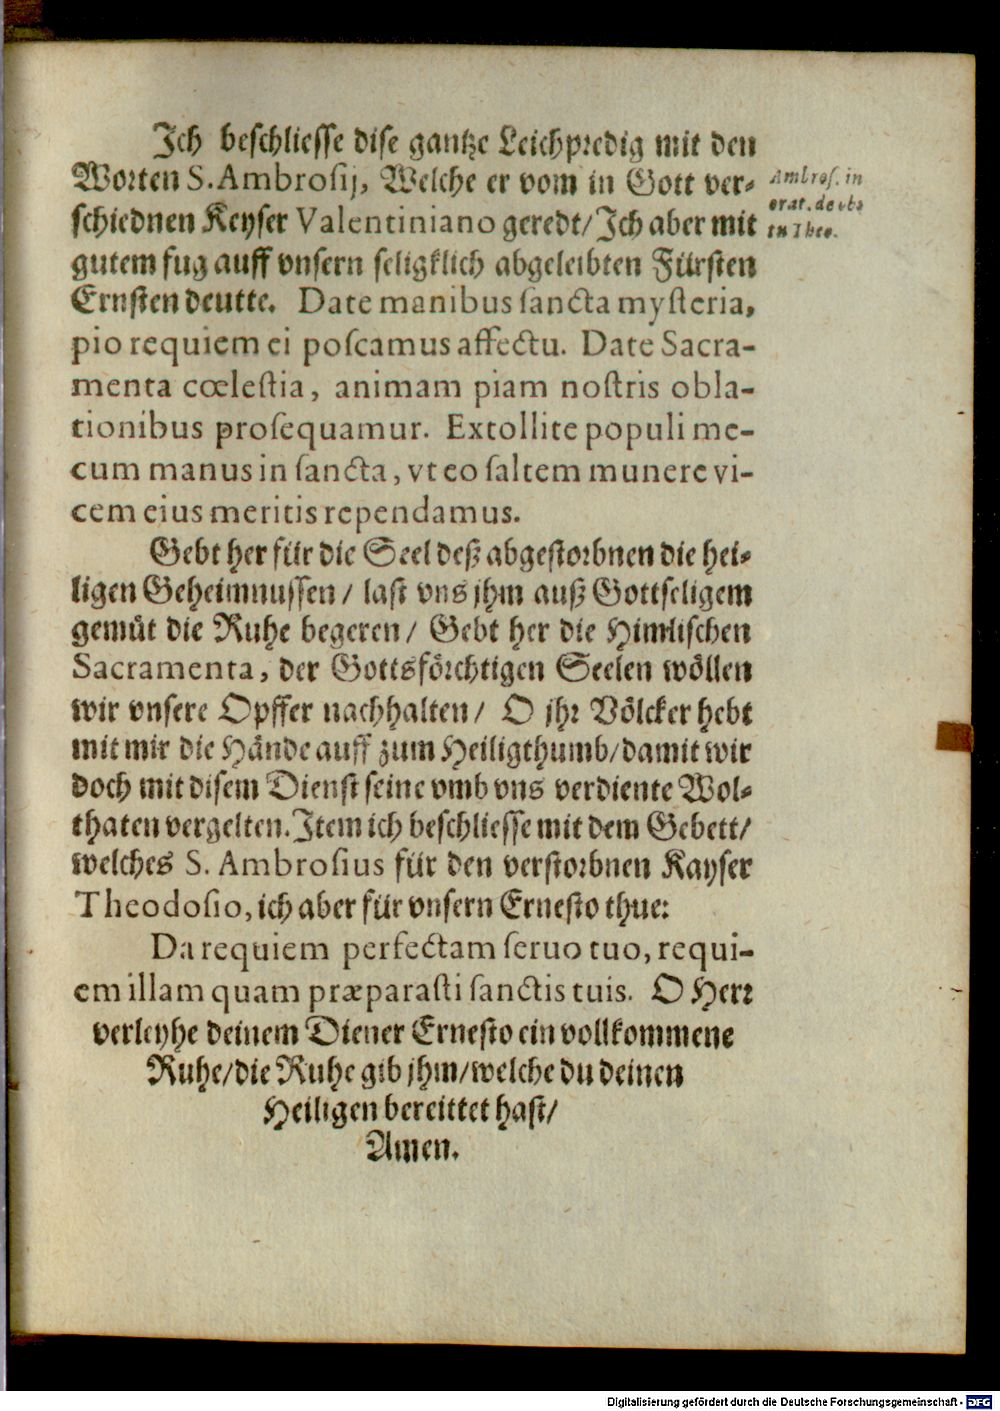 Ich beschliesse dise gantze Leichpredig mit den
Worten S. Ambrosij, Welche er vom in Gott ver-
schiednen Keyser Valentiniano geredt/ Ich aber mit
gutem fug auff vnsern seligklich abgeleibten Fürsten
Ernsten deutte. Date manibus sancta mysteria,
pio requiem ei poscamus affectu. Date Sacra-
menta cœlestia, animam piam nostris obla-
tionibus prosequamur. Extollite populi me-
cum manus in sancta, vt eo saltem munere vi-
cem eius meritis rependamus.
Gebt her für die Seel deß abgestorbnen die hei-
ligen Geheimnussen / last vns jhm auß Gottseligem
gemüt die Ruhe begeren / Gebt her die Himlischen
Sacramenta, der Gottsförchtigen Seelen wöllen
wir vnsere Opffer nachhalten / O jhr Völcker hebt
mit mir die Hände auff zum Heiligthumb/ damit wir
doch mit disem Dienst seine vmb vns verdiente Wol-
thaten vergelten. Item ich beschliesse mit dem Gebett/
welches S. Ambrosius für den verstorbnen Kayser
Theodosio, ich aber für vnsern Ernesto thue:
Da requiem perfectam seruo tuo, requi-
em illam quam præparasti sanctis tuis. O Herr
verleyhe deinem Diener Ernesto ein vollkommene
Ruhe/ die Ruhe gib jhm/ welche du deinen
Heiligen bereittet hast/
Amen.
Ambros. in
orat. de obi
Digitalisierung gefördert durch die Deutsche Forschungsgemeinschaft - DFG